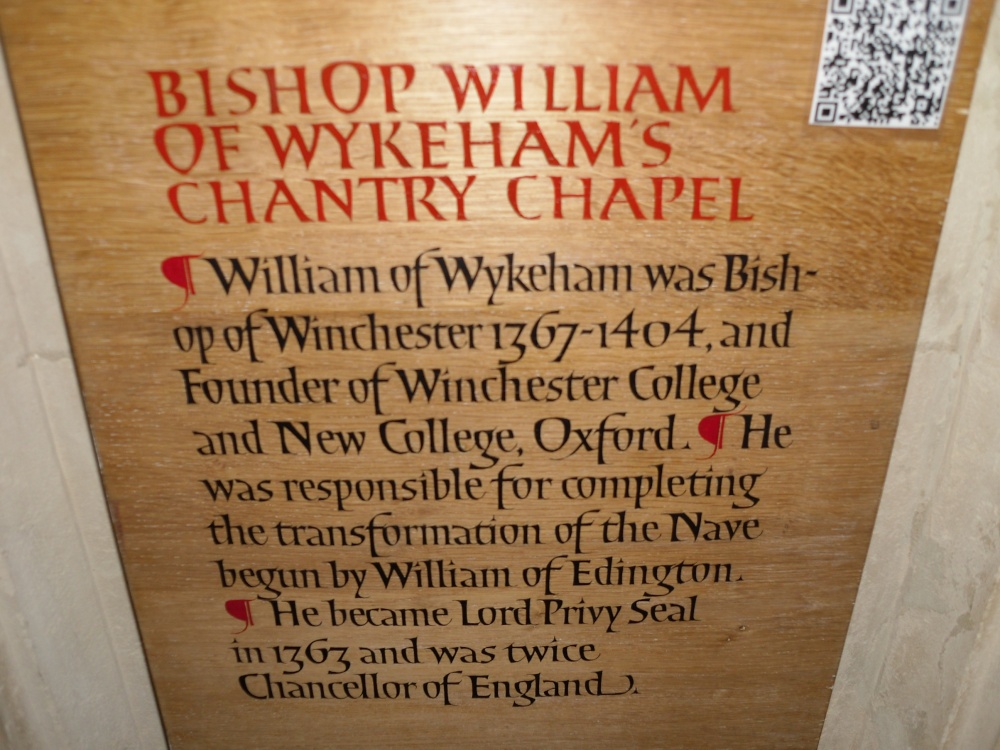 BISHOP WILLIAM
OF WYKEHAM'S
CHANTRY CHAPEL
¶ William of Wykeham was Bish-
op of Winchester 1367-1404, and
Founder of Winchester College
and New College, Oxford. ¶ He
was responsible for completing
the transformation of the Nave
begun by William of Edington.
¶ He became Lord Privy Seal
in 1363 and was twice
Chancellor of England.